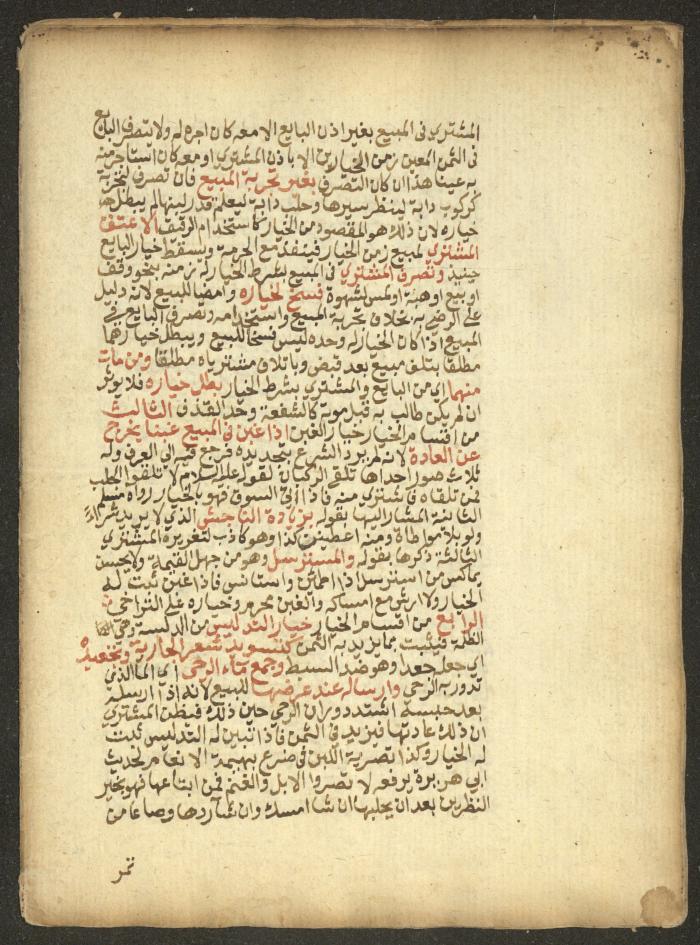 المشتري في المبيع بغير اذن البايع الا معه كان اجره له ولا يتصرف البايع
في الثمن المعين زمن الخيارين الا باذن المشتري او معه كان استاجر منه
به عينا هذا ان كان التصرف بغير تجربة المبيع فان تصرف لتجربة
كركوب دابة لينظر سيرها وحلب دابة ليعلم قدر لبنها لم يبطل
خياره لان ذلك هو المقصود من الخيار كاستخدام الرقيق الا عتق
المشتري لمبيع زمن الخيار فينفذ مع الحرمة ويسقط خيار البايع
حينيذ وتصرف المشتري في المبيع بشرط الخيار له زمنه بنحو وقف
او بيع او هبة او لمس لشهوة فسخ لخياره وامضا للبيع لانه دليل
على الرضى به بخلاف تجربة المبيع واستخدامه وتصرف البايع في
المبيع اذا كان الخيار له وحده ليس فسخا للبيع ويبطل خيارهما
مطلقا بتلف مبيع بعد قبض وباتلاف مشتر اياه مطلقا ومن مات
منهما اي من البايع والمشتري بشرط الخيار بطل خياره فلا يورث
ان لم يكن طالب به قبل موته كالشفعة وحد القذف الثالث
من اقسام الخيار خيار الغبن اذا غبن في المبيع غبنا يخرج
عن العادة لانه لم يرد الشرع بتحديده فرجع فيه الى العرف وله
ثلاث صور احداها تلقي الركبان لقوله عليه السلام لا تلقوا الجلب
فمن تلقاه فاشترى منه فاذا اتى السوق فهو بالخيار رواه مسلم
الثانية المشار اليها بقوله بزيادة الناجش الذي لا يريد شراء
ولو بلا مواطاة ومنه اعطيت كذا وهو كاذب لتغريره المشتري
الثالثة ذكرها بقوله والمسترسل وهو من جهل القيمة ولا يحسن
يماكس من استرسل اذا اطمان واستانس فاذا غبن ثبت له
الخيار ولا ارش مع امساكه والغبن محرم وخياره على التراخي
الرابع من اقسام الخيار خيار التدليس من الدلسة وهي
الظلمة فيثبت بما يزيد به الثمن كتسويد شعر الجارية وتجعيده
اي جعله جعدا وهو ضد السبط وجمع ماء الرحى اي الما الذي
تدور به الرحى وارساله عند عرضها للبيع لانه اذا ارسله
بعد حبسه اشتد دوران الرحى حين ذلك فيظن المشتري
ان ذلك عادتها فيزيد في الثمن فاذا تبين له التدليس ثبت
له الخيار وكذا تصرية اللبن في ضرع بهيمة الانعام لحديث
ابي هريرة يرفعه لا تصروا الابل والغنم فمن ابتاعها فهو بخير
النظرين بعد ان يحلبها ان شا امسك وان شا ردها وصاعا من
تمر